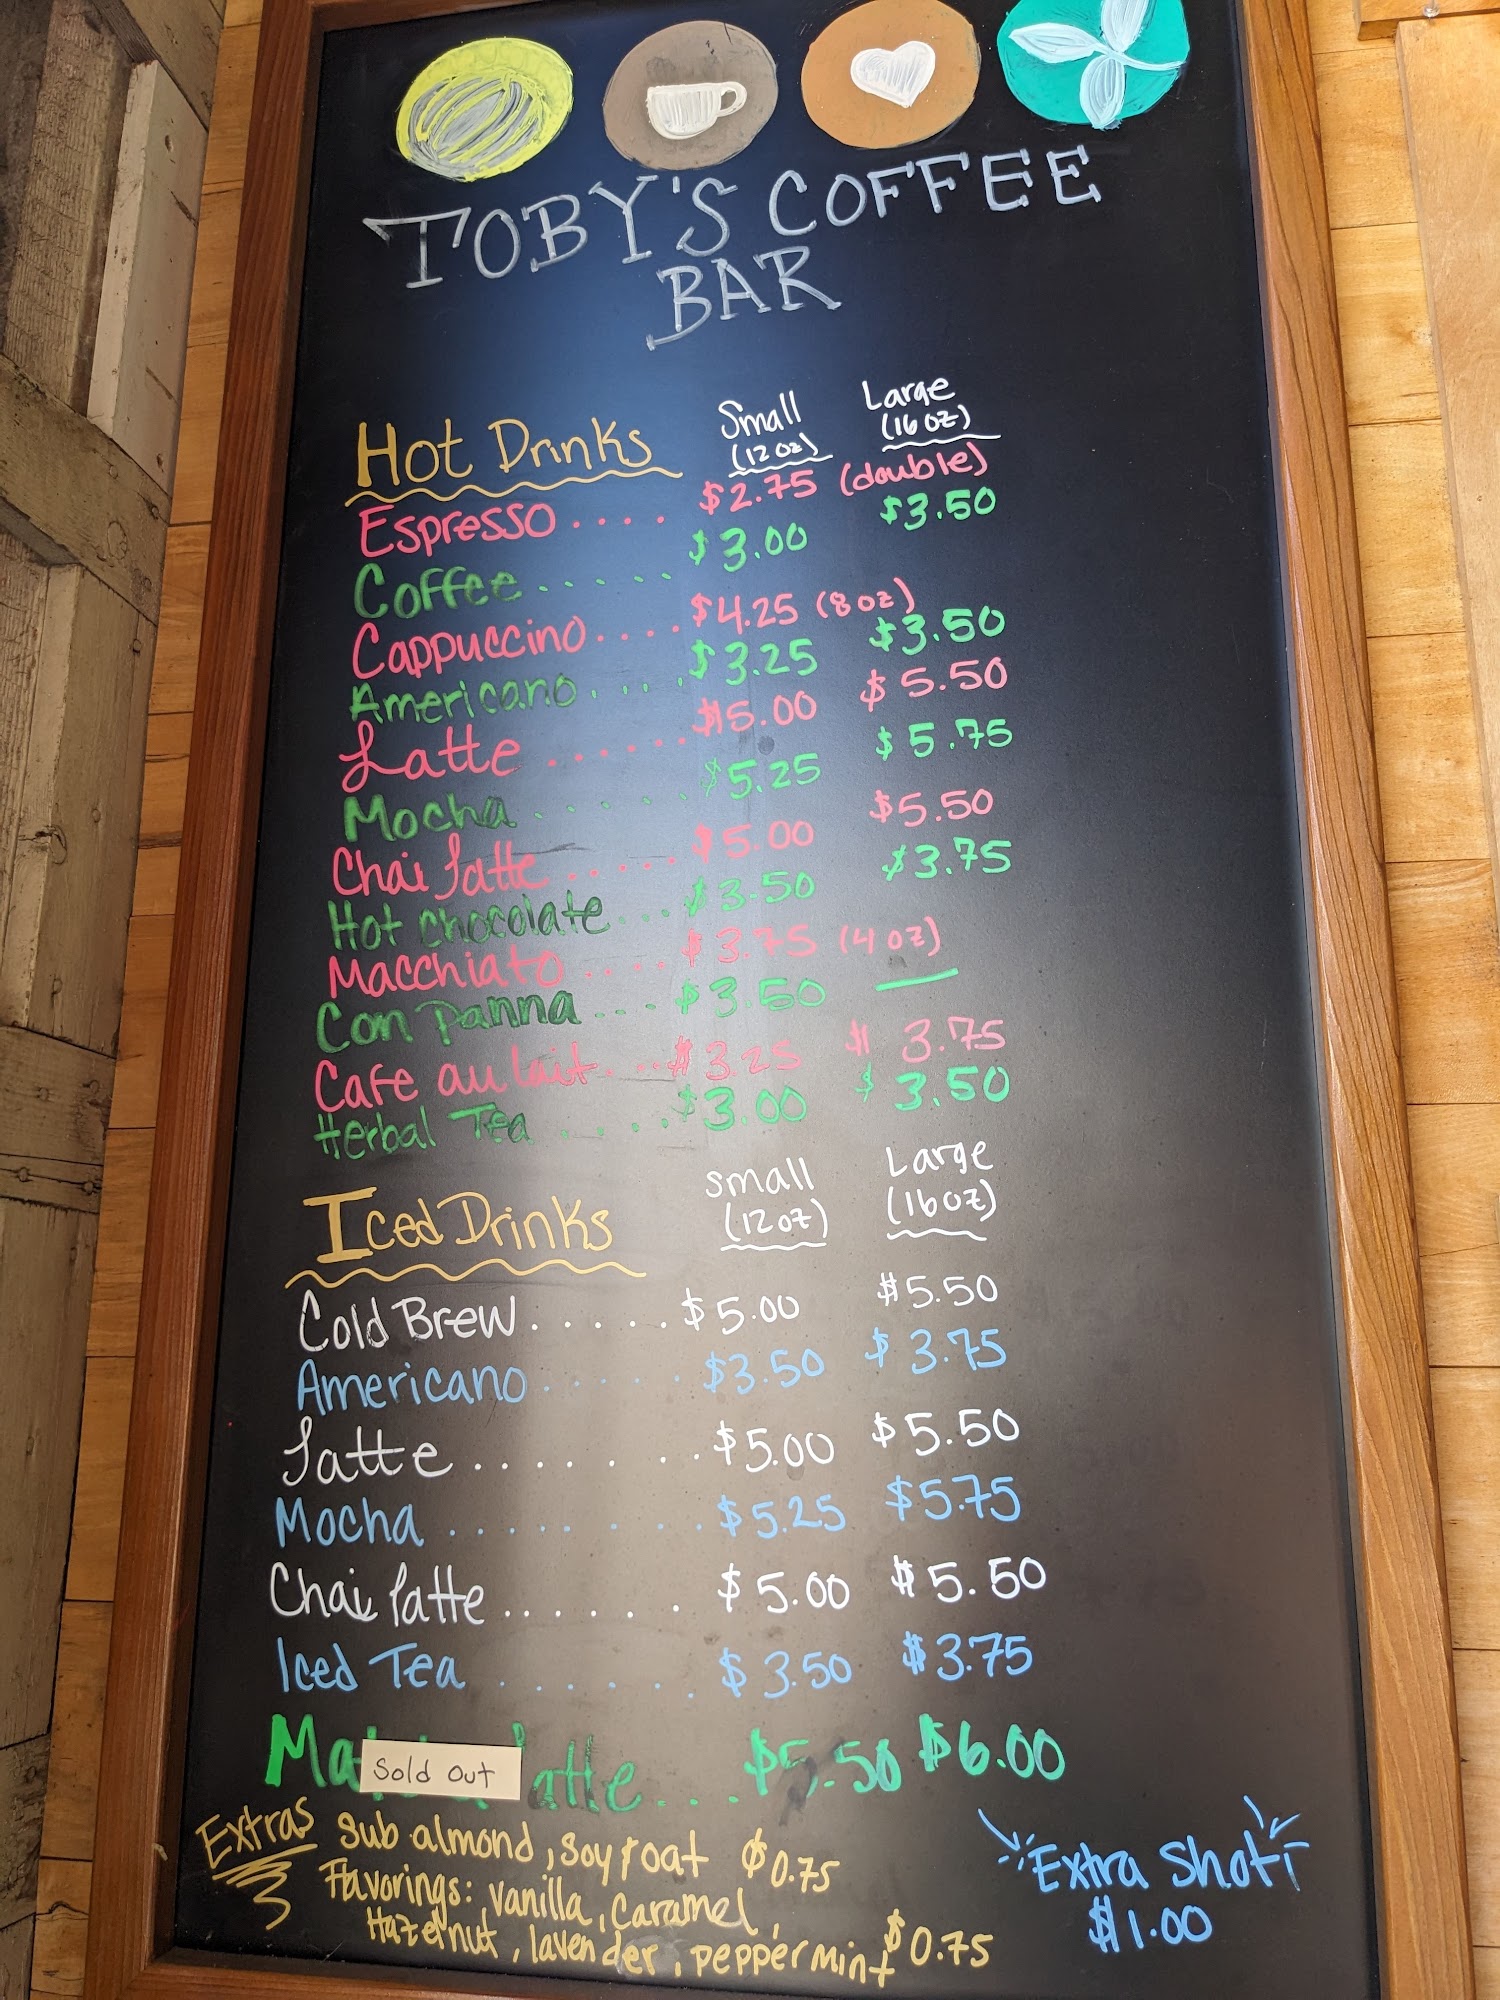 TOBY'S COFFEE
BAR
Hot Drinks Small Large
(12 oz) (16 oz)
Espresso .... $2.75 (double)
Coffee ...... $3.00 $3.50
Cappuccino .... $4.25 (8 oz)
Americano ..... $3.25 $3.50
Latte ....... $5.00 $5.50
Mocha ...... $5.25 $5.75
Chai Latte ...... $5.00 $5.50
Hot chocolate .... $3.50 $3.75
Macchiato .... $3.75 (4 oz)
Con Panna ... $3.50 —
Cafe au lait ... $3.25 $3.75
Herbal Tea ..... $3.00 $3.50
Iced Drinks small Large
(12 oz) (16 oz)
Cold Brew ...... $5.00 $5.50
Americano ...... $3.50 $3.75
Latte ........ $5.00 $5.50
Mocha ........ $5.25 $5.75
Chai Latte ....... $5.00 $5.50
Iced Tea ....... $3.50 $3.75
Ma Sold Out atte ... $5.50 $6.00
Extras sub almond, soy, oat $0.75
Flavorings: vanilla, caramel,
Hazelnut, lavender, peppermint $0.75
Extra Shot
$1.00